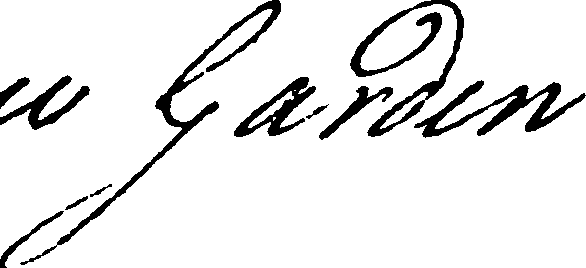 w Garden